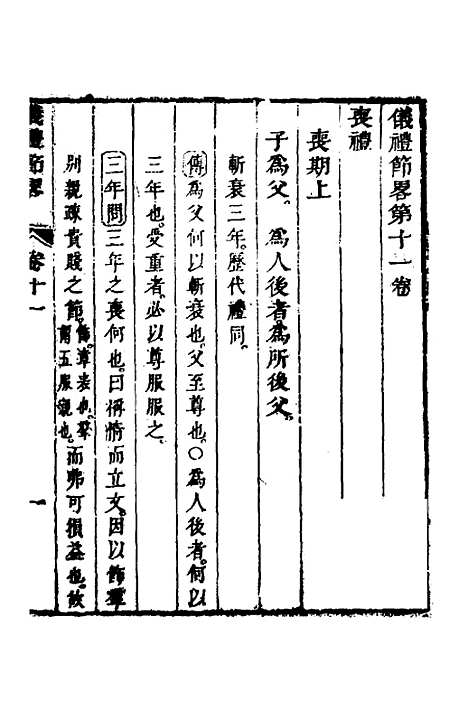 儀禮節畧第十一卷
喪禮
喪期上
子爲父。爲人後者爲所後父。
斬衰三年。歷代禮同。
傳爲父何以斬衰也。父至尊也。○爲人後者。何以
三年也。受重者。必以尊服服之。
三年問三年之喪何也。曰稱情而立文。因以飾羣
別親疎貴賤之節。飾。章表也。羣謂五服親也。而弗可損益也。故
儀禮節畧 卷十一 一